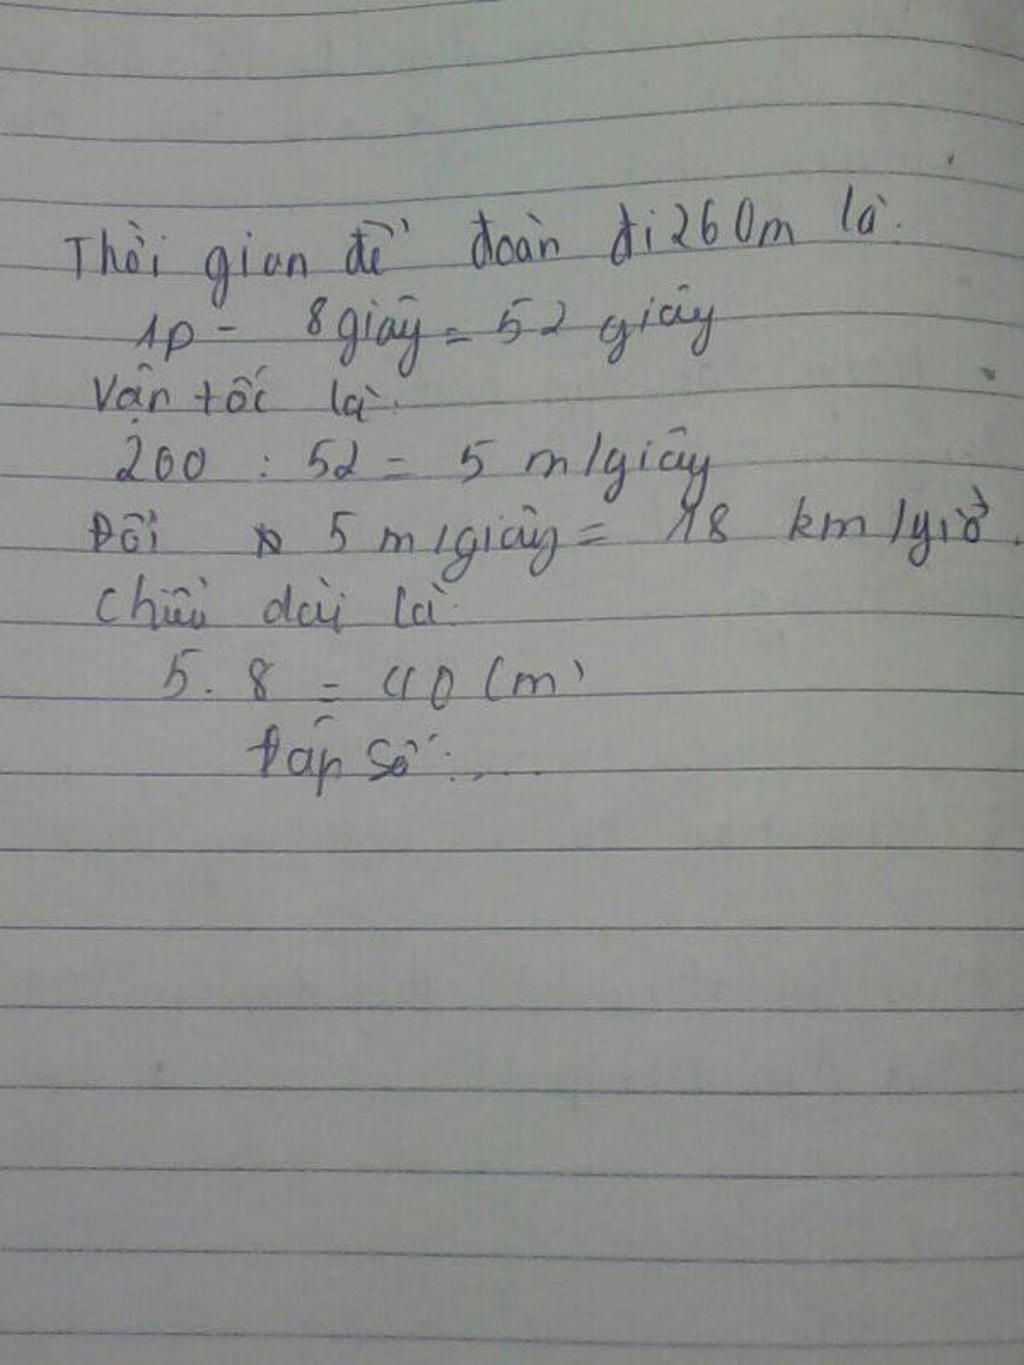 Thời gian để đoàn đi 260m là.
1p - 8 giây = 52 giây
Vận tốc là.
200 : 52 = 5 m/giây
Đổi 5 m/giây = 18 km/giờ.
Chiều dài là
5. 8 = 40 (m)
Đáp số: ....